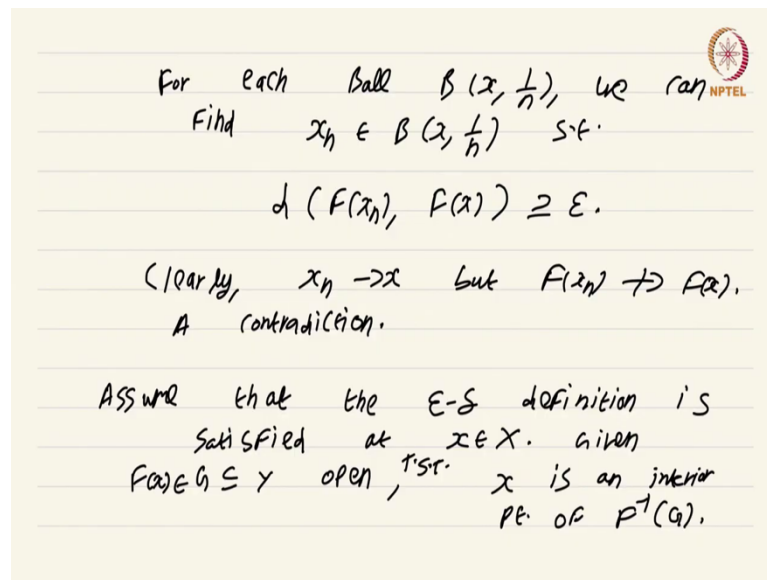 For each Ball B(x, 1/n), we can
NPTEL
Find xₙ ∈ B(x, 1/n) s.t.
d(F(xₙ), F(x)) ≥ ε.
Clearly, xₙ → x but F(xₙ) ↛ F(x).
A contradiction.
Assume that the ε-δ definition is
satisfied at x ∈ X. Given
F(x) ∈ G ⊆ Y open, T.S.T. x is an interior
pt. of F⁻¹(G).